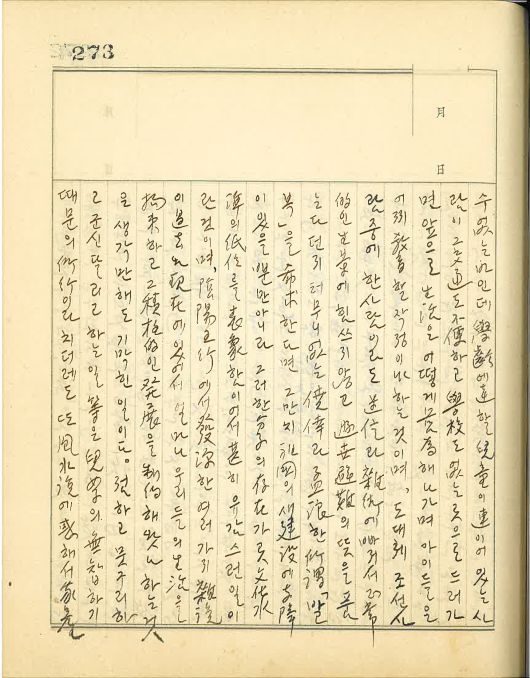 273
月
日
수 없는 바인데 學齡에 達할 兒童이 連이어 있는 사
람이 그 交通도 不便하고 學校도 없는 곳으로 드러가
면 앞으로 生活을 어떻게 하나가며 아이들을
어찌 敎育할 작정이냐 하는 것이며, 도대체 조선사
람 중에 한 사람이라도 迷信과 雜術에 빠져서 正常
的인 生業에 힘쓰지 않고 避難의 뜻을 품
는다던지 터무니없는 僥倖과 孟浪한 所謂 「발
복」을 希求한다면 그만치 祖國의 新建設에 支障
이 있을 뿐만 아니라 그러한 分子의 存在가 곳 文化水
準의 低位를 表象함이어서 甚히 유감스런 일이
란 것이며, 陰陽五行에서 發源한 여러 가지 雜說
이 過去와 現在에 있어서 얼마나 우리들의 生活을
拘束하고 그 積極的인 發展을 制約해 왔나 하는 것
을 생각만 해도 기막힌 일이 점하고 뭇구리하
고 군신달리고 하는 일 等은 民의 無知하기
때문의 라 치더래도 또 風水說에 惑해서